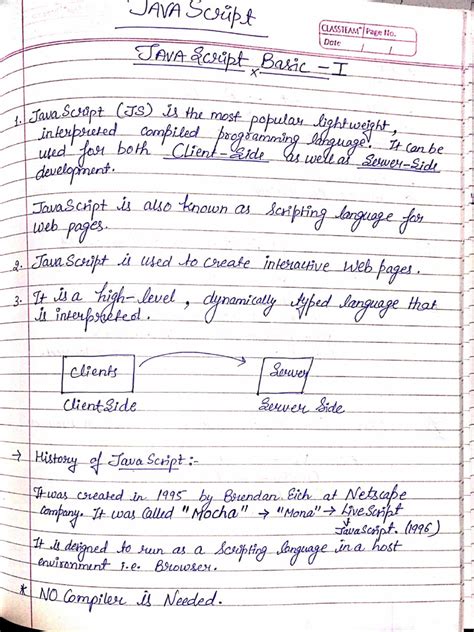 JAVA Script
CLASSTEAM Page No.
Date / /
JAVA Script Basic - I
1. JavaScript (JS) is the most popular lightweight,
interpreted compiled programming language. It can be
used for both Client-Side as well as Server-Side
development.
JavaScript is also known as Scripting language for
web pages.
2. JavaScript is used to create interactive Web pages.
3. It is a high-level, dynamically typed language that
is interpreted.
Clients Server
Client Side Server Side
→ History of JavaScript :-
It was created in 1995 by Brendan Eich at Netscape
company. It was Called "Mocha" → "Mona" → LiveScript
JavaScript. (1996)
It is designed to run as a Scripting language in a host
environment i.e. Browser.
* NO Compiler is Needed.